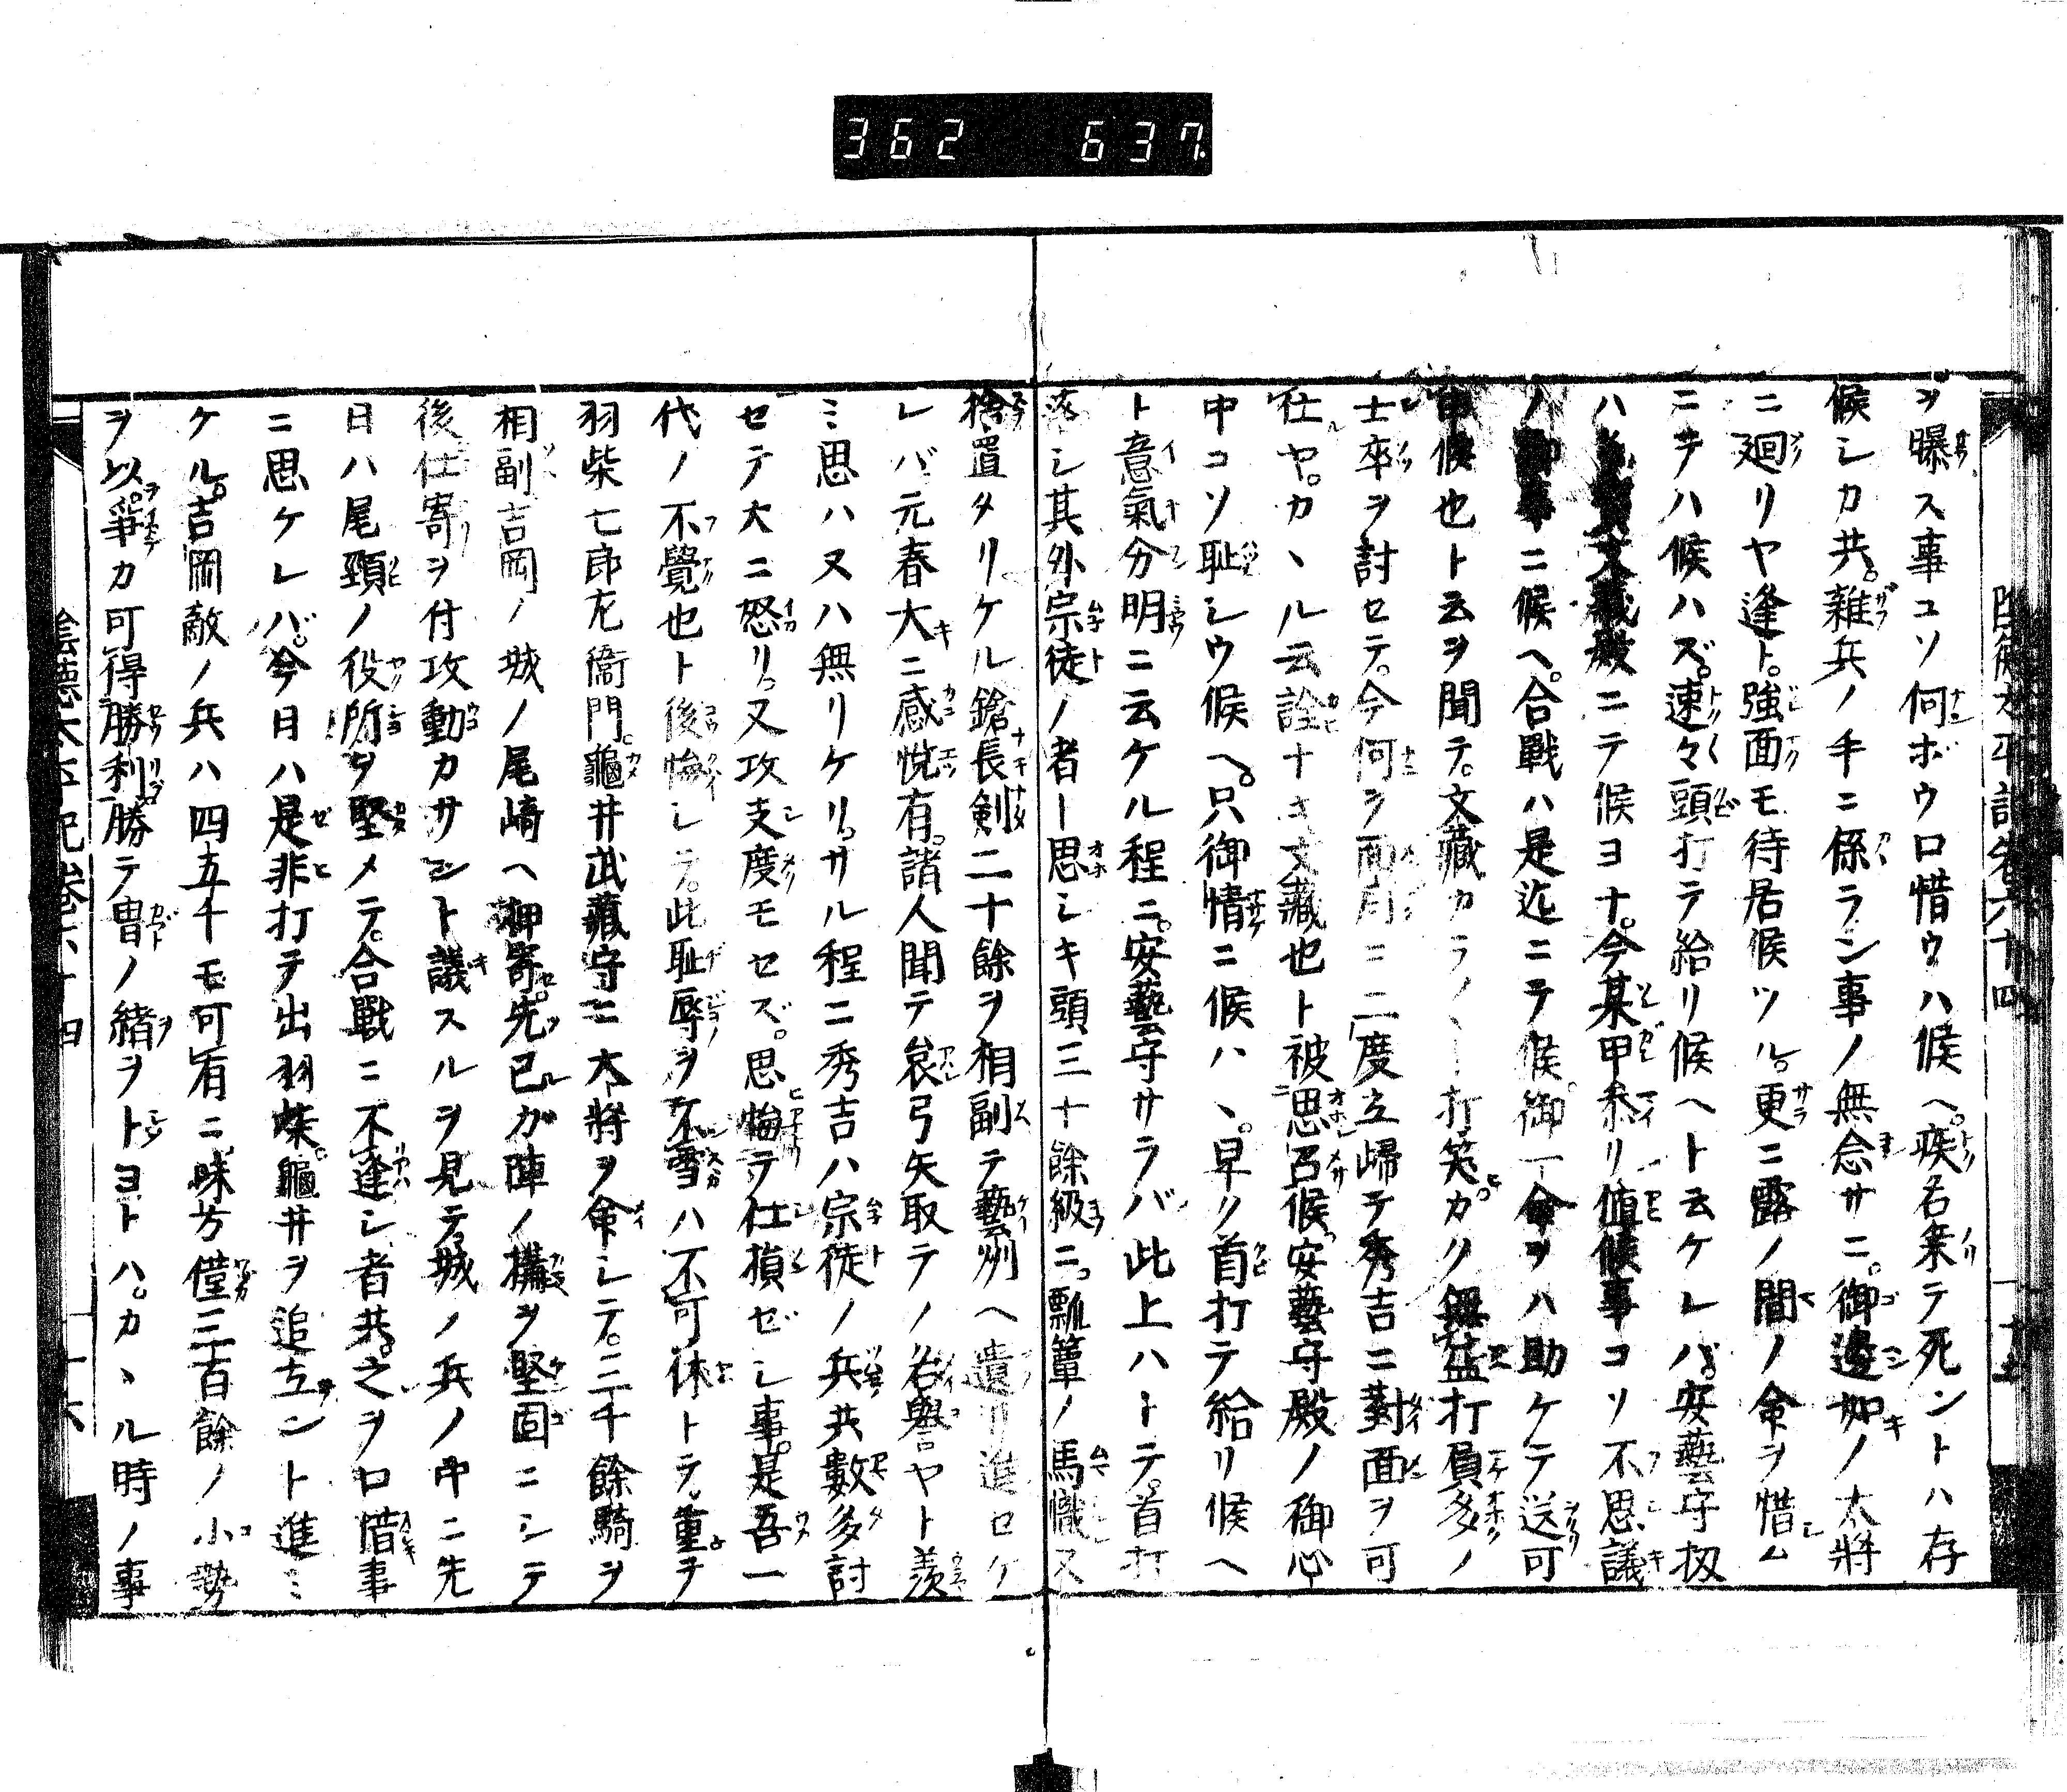 362 637
ヲ曝ス事コソ何ボウ口惜ウハ候ヘ。疾名乗テ死ントハ存
候シカ共。雜兵ノ手ニ係ラン事ノ無念サニ。御邊如キノ大將
ニ廻リヤ逢ト。強面モ待居候ツル。更ニ露ノ間ノ命ヲ惜ム
ニテハ候ハズ。速々頭打テ給リ候ヘト云ケレバ。安藝守扨
ハ文藏殿ニテ候ヨナ。今某甲參リ値候事コソ不思議
ノ御事ニ候ヘ。合戰ハ是迄ニテ候。御一命ヲハ助ケテ送可
申候也ト云ヲ聞テ。文藏カラ〱ト打笑ヒ。カク無益打負多ノ
士卒ヲ討セテ。今何ノ面目ニ二度立歸テ秀吉ニ對面ヲ可
仕ヤ。カヽル云詮ナキ文藏也ト被思召候。安藝守殿ノ御心
中コソ恥シウ候ヘ。只御情ニ候ハヽ。早ク首打テ給リ候ヘ
ト意氣分明ニ云ケル程ニ。安藝守サラバ此上ハトテ。首打
落シ其外宗徒ノ者ト思シキ頭三十餘級ニ。瓢簞ノ馬幟又
捨置タリケル鎗長剣二十餘ヲ相副テ藝州ヘ遣リ進セケ
レバ元春大ニ感悦有。諸人聞テ哀弓矢取テノ名譽ヤト羨
ミ思ハヌハ無リケリ。サル程ニ秀吉ハ宗徒ノ兵共數多討
セテ大ニ怒リ。又攻支度モセズ。思悔テ仕損ゼシ事。是吾一
代ノ不覺也ト後悔シテ。此恥辱ヲ不雪ハ不可休トテ。重テ
羽柴七郎左衞門。龜井武藏守ニ大將ヲ命シテ。三千餘騎ヲ
相副吉岡ノ城ノ尾崎ヘ押寄。先已ガ陣ノ構ヲ堅固ニシテ
後仕寄ヲ付攻動カサント議スルヲ見テ。城ノ兵ノ中ニ先
日ハ尾頸ノ役所ヲ堅メテ。合戰ニ不逢シ者共。之ヲ口惜事
ニ思ケレバ。今日ハ是非打テ出羽柴。龜井ヲ追立ント進ミ
ケル。吉岡敵ノ兵ハ四五千モ可有ニ。味方僅三百餘ノ小勢
ヲ以。爭カ可得勝利。勝テ冑ノ緒ヲトヨトハ。カヽル時ノ事
陰德太平記卷六十四 十六